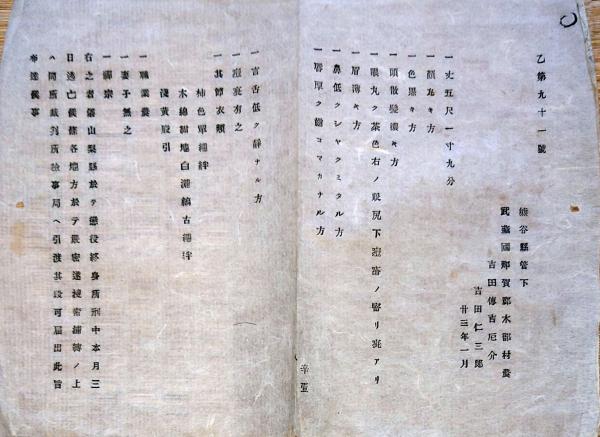 乙第九十一號
熊谷縣管下
武藏國那賀郡木部村農
吉田傳吉厄介
吉田仁三郎
廿三年一月
一丈五尺一寸九分
一顔丸キ方
一色黒キ方
一頭散髮濃キ方
一眼丸ク茶色右ノ眼尻下
一眉薄キ方
一鼻低クシヤクミタル方
一唇厚ク齒コマカナル方
一言舌低ク靜ナル方
一瘡衰有之
一其節衣類
柿色單繻絆
木綿紺地白瀧縞古繻絆
淺黄股引
一職業農
一妻子無之
一禪宗
右之者儀山梨縣於テ懲役終身所刑中本月三
日逃亡候條各地方於テ嚴密遂捜索捕縛ノ上
ハ同所裁判所檢事局ヘ引渡其段可屆出此旨
布達候事